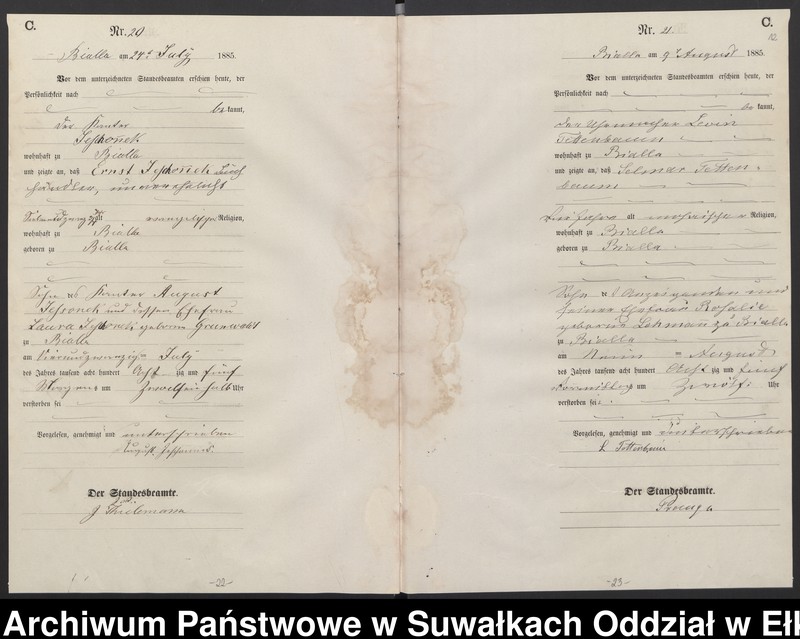 C.
Nr. 20
Bialla am 24t July 1885.
Vor dem unterzeichneten Standesbeamten erschien heute, der
Persönlichkeit nach
be kannt,
der Kantor
wohnhaft zu Bialla
und zeigte an, daß Ernst
händler, unverehelicht
alt evangelischer Religion,
wohnhaft zu Bialla
geboren zu Bialla
Sohn des Kantor August
und dessen Ehefrau
Laura geborene Grunwald
zu Bialla
am Vierundzwanzig July
des Jahres tausend acht hundert Acht zig und fünf
Morgens um Zwoelfeinhalb Uhr
verstorben sei
Vorgelesen, genehmigt und unterschrieben
August
Der Standesbeamte.
Thielemann
-22-
C.
12
Nr. 21.
Bialla am 9t August 1885.
Vor dem unterzeichneten Standesbeamten erschien heute, der
Persönlichkeit nach
be kannt,
der Uhrmacher Levin
Tettenbaum
wohnhaft zu Bialla
und zeigte an, daß Selmar Tetten-
baum
alt mosaischer Religion,
wohnhaft zu Bialla
geboren zu Bialla
Sohn des Anzeigenden und
seiner Ehefrau Rosalie
geborene Lehmann zu Bialla
zu Bialla
am Neun August
des Jahres tausend acht hundert Acht zig und fünf
Vormittags um Zwölf Uhr
verstorben sei
Vorgelesen, genehmigt und unterschrieben
L Tettenbaum
Der Standesbeamte.
-23-
Archiwum Państwowe w Suwałkach Oddział w Eł